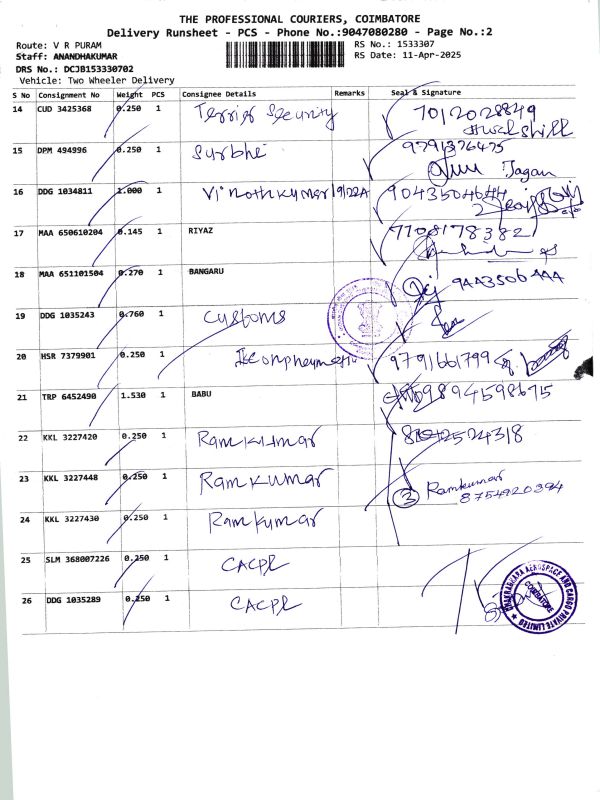 THE PROFESSIONAL COURIERS, COIMBATORE
Delivery Runsheet - PCS - Phone No.:9047080280 - Page No.:2
Route: V R PURAM
RS No.: 1533307
Staff: ANANDHAKUMAR
RS Date: 11-Apr-2025
DRS No.: DCJB153330702
Vehicle: Two Wheeler Delivery
S No Consignment No Weight PCS Consignee Details Remarks Seal & Signature
14 CUD 3425368 0.250 1 Terrier Security 7012028849
15 DPM 494996 0.250 1 Surbhi 9791376475
Jagan
16 DDG 1034811 1.000 1 Vinothkumar 9/22A 9043504644
17 MAA 650610204 0.145 1 RIYAZ 7708178382
18 MAA 651101504 0.270 1 BANGARU 9443506444
19 DDG 1035243 0.760 1 Customs
20 HSR 7379901 0.250 1 9791661799
21 TRP 6452490 1.530 1 BABU 9894598675
22 KKL 3227420 0.250 1 Ramkumar
23 KKL 3227448 0.250 1 Ramkumar 3 Ramkumar
8754920394
24 KKL 3227430 0.250 1 Ramkumar
25 SLM 368007226 0.250 1 CACPL
26 DDG 1035289 0.250 1 CACPL
AEROSPACE AND CARGO PRIVATE LIMITED
COIMBATORE